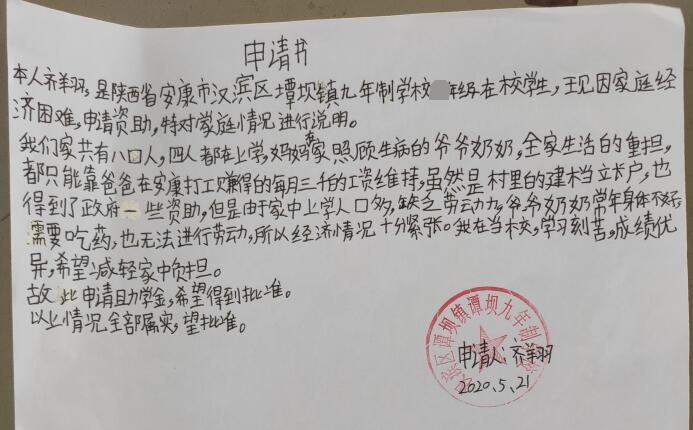 申请书
本人齐羊羽,是陕西省安康市汉滨区墰坝镇九年制学校年级在校学生,现因家庭经
济困难,申请资助,特对家庭情况进行说明。
我们家共有八口人,四人都在上学,妈妈在家照顾生病的爷爷奶奶,全家生活的重担,
都只能靠爸爸在安康打工赚得的每月三千的工资维持,虽然是村里的建档立卡户,也
得到了政府一些资助,但是由于家中上学人口多,缺乏劳动力,爷爷奶奶常年身体不好,
需要吃药,也无法进行劳动,所以经济情况十分紧张。我在当校,学习刻苦,成绩优
异,希望减轻家中负担。
故此申请助学金,希望得到批准。
以上情况全部属实,望批准。
滨区谭坝镇谭坝九年制学
申请人:齐羊羽
2020.5.21